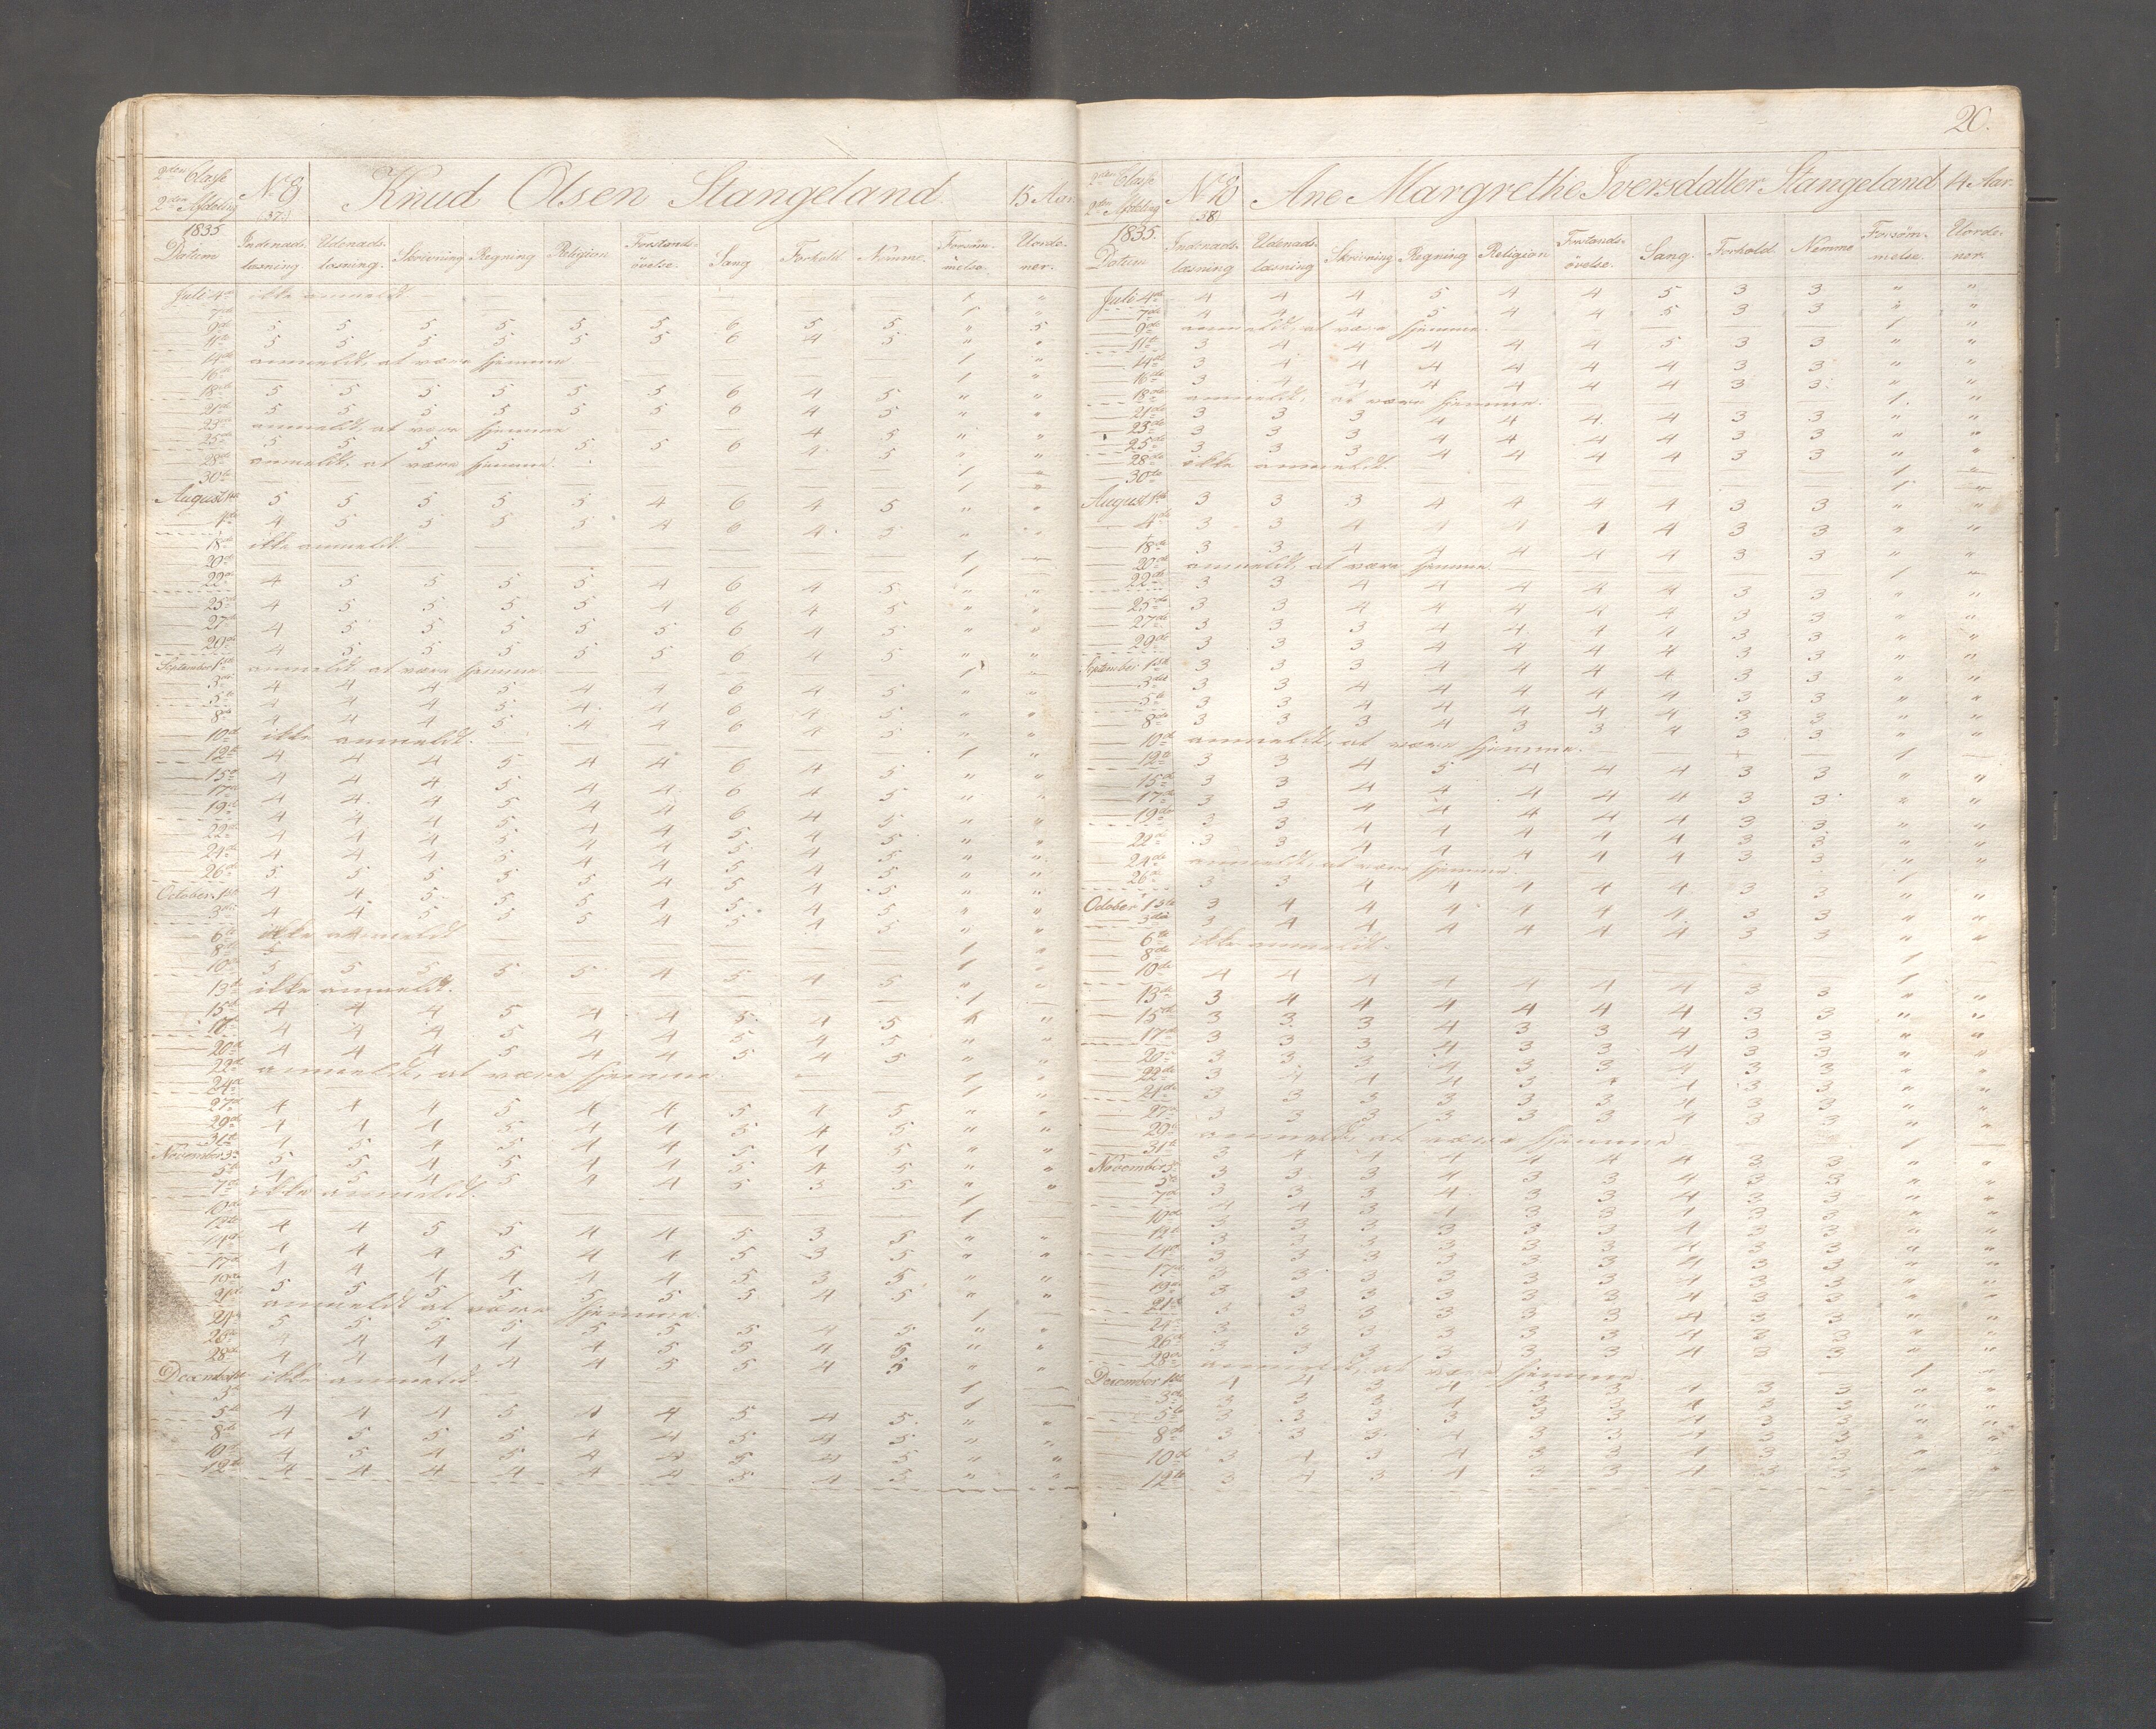 20.
2den Classe
2den Afdeling
No 8
(37.)
Knud Olsen Stangeland.
15 Aar.
1835
Datum Indenads-læsning Udenads-læsning. Skrivning Regning Religion Forstands-övelse. Sang Forhold Nemme. Forsöm-melse. Uorde-ner.
Juli 4de ikke anmeldt 1 "
7de 1 "
9de 5 5 5 5 5 5 6 5 5 " 5
11te 5 5 5 5 5 5 6 4 5 " "
14de anmeldt, at være hjemme 1 "
16de 1 "
18de 5 5 5 5 5 5 6 4 5 " "
21de 5 5 5 5 5 5 6 4 5 " "
23de anmeldt, at være hjemme 4 5 " "
25de 5 5 5 5 5 5 6 4 5 " "
28de anmeldt, at være hjemme. 1 "
30te 1 "
August 1ste 5 5 5 5 5 4 6 4 5 " "
4de 4 5 5 5 5 4 6 4 5 " "
18de ikke anmeldt. 1
20de 1
22de 4 5 5 5 5 4 6 4 5 " "
25de 4 5 5 5 5 4 6 4 5 " "
27de 4 5 5 5 5 5 6 4 5 " "
29de 4 5 5 5 5 5 6 4 5 " "
September 1ste anmeldt at være hjemme 1
3die 4 4 4 5 4 4 6 4 5 " "
5te 4 4 4 5 4 4 6 4 5 " "
8de 4 4 4 5 4 4 6 4 5 " "
10de ikke anmeldt. 1 "
12te 4 4 4 5 4 4 6 4 5 " "
15de 4 4 4 5 4 4 6 4 5 " "
17de 4 4 4 5 4 4 6 4 5 " "
19de 4 4 4 5 4 4 5 4 5 " "
22de 4 4 4 5 4 4 5 4 5 " "
24de 4 4 4 5 4 4 5 4 5 " "
26de 5 5 5 5 5 4 5 4 5 " "
October 1ste 4 4 5 5 5 4 5 4 5 " "
3die 4 4 5 5 5 4 5 4 5 " "
6te ikke anmeldt 1 "
8de 5 1 "
10de 5 5 5 5 5 4 5 4 5 " "
13de ikke anmeldt. 1
15de 4 4 4 5 4 4 5 4 5 "
17de 4 4 4 5 4 4 5 4 5 " "
20de 4 4 4 5 4 4 5 4 5 " "
22de anmeldt, at være hjemme. 1 "
24de 1 "
27de 4 4 4 5 4 4 5 4 5 " "
29de 4 4 4 5 4 4 5 4 5 " "
31te
November 3die
5te
7de ikke anmeldt. 1
10de 1
12te 4 4 5 5 4 4 5 3 5 " "
14de 4 4 4 5 4 4 5 3 5 " "
17de 4 4 4 4 4 4 5 3 5 " "
19de 5 5 5 5 5 5 5 4 5 " "
21de anmeldt at være hjemme 1
24de 5 5 5 5 5 5 5 4 5 " "
26de 4 4 4 4 4 5 5 4 5 " "
28de 4 4 4 4 4 5 5 4 5 " "
December 1ste ikke anmeldt. 1
3die 1
5te 4 4 4 5 4 4 5 4 5 " "
8de 4 5 5 5 4 4 5 4 5 " "
10de 4 5 4 5 4 4 5 4 5 " "
12te 4 4 4 4 4 4 5 4 5 " "
2den Classe
2den Afdeling
No 8
(38)
Ane Margrethe Iversdatter Stangeland
14 Aar.
1835.
Datum Indenads-læsning Udenads-læsning Skrivning Regning Religion Forstands-övelse. Sang. Forhold Nemme Forsöm-melse. Uorde-ner.
Juli 4de 4 4 4 5 4 4 5 3 3 " "
7de 4 4 4 5 4 4 5 3 3 " "
9de anmeldt, at være hjemme. 1 "
11te 3 4 4 4 4 4 5 3 3 " "
14de 3 4 4 4 4 4 4 3 3 " "
16de 3 4 4 4 4 4 4 3 3 " "
18de anmeldt, at være hjemme. 1. "
21de 3 3 3 4 4 4 4 3 3 " "
23de 3 3 3 4 4 4 4 3 3 " "
25de 3 3 3 4 4 4 4 3 3 " "
28de ikke anmeldt. 1
30te 1
August 1ste 3 3 3 4 4 4 4 3 3 " "
4de 3 3 4 4 4 4 4 3 3 " "
18de 3 3 4 4 4 4 4 3 3 " "
20de anmeldt, at være hjemme. 1
22de 3 3 4 4 4 4 4 3 3 " "
25de 3 3 4 4 4 4 4 3 3 " "
27de 3 3 3 4 4 4 4 3 3 " "
29de 3 3 3 4 4 4 4 3 3 " "
September 1ste 3 3 3 4 4 4 4 3 3 " "
3die 3 3 4 4 4 4 4 3 3 " "
5te 3 3 4 4 4 4 4 3 3 " "
8de 3 3 3 4 3 3 4 3 3 " "
10de anmeldt, at være hjemme. 1
12te 3 3 4 5 4 4 4 3 3 " "
15de 3 3 4 4 4 4 4 3 3 " "
17de 3 3 4 4 4 4 4 3 3 " "
19de 3 3 4 4 4 4 4 3 3 " "
22de 3 3 4 4 4 4 4 3 3 " "
24de anmeldt, at være hjemme. 1
26de 3 3 4 4 4 4 4 3 3 " "
October 1ste 3 4 4 4 4 4 4 3 3 " "
3die 3 4 4 4 4 4 4 3 3 " "
6te ikke anmeldt. 1
8de 1
10de 4 4 4 4 4 4 4 3 3 " "
13de 3 4 4 4 4 4 4 3 3 " "
15de 3 3 3 4 3 3 4 3 3 " "
17de 3 3 3 4 3 3 4 3 3 " "
20de 3 3 3 4 3 3 4 3 3 " "
22de
24de
27de
29de anmeldt, at være hjemme 1
31te 3 4 4 4 4 4 4 3 3 " "
November 3die 3 3 3 4 3 3 4 3 3 " "
5te 3 3 3 4 3 3 4 3 3 " "
7de
10de
12te
14de
17de
19de
21de
24de
26de
28de anmeldt, at være hjemme. 1
December 1ste
3die
5te
8de 3 3 3 4 3 3 4 3 3 " "
10de 3 4 3 4 3 3 4 3 3 " "
12te 3 4 3 4 3 3 4 3 3 " "